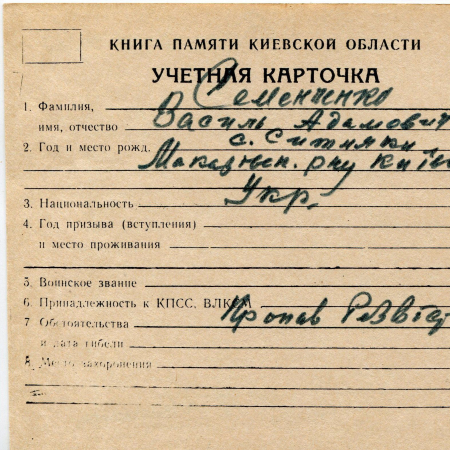 КНИГА ПАМЯТИ КИЕВСКОЙ ОБЛАСТИ
УЧЕТНАЯ КАРТОЧКА
1. Фамилия, Семененко
имя, отчество Василь Адамович
2. Год и место рожд. с. Ситняки
Макарівськ. р-ну Київ
3. Национальность Укр.
4. Год призыва (вступления)
и место проживания
5. Воинское звание
6. Принадлежность к КПСС, ВЛКСМ
7. Обстоятельства Пропав
и дата гибели
8. Место захоронения